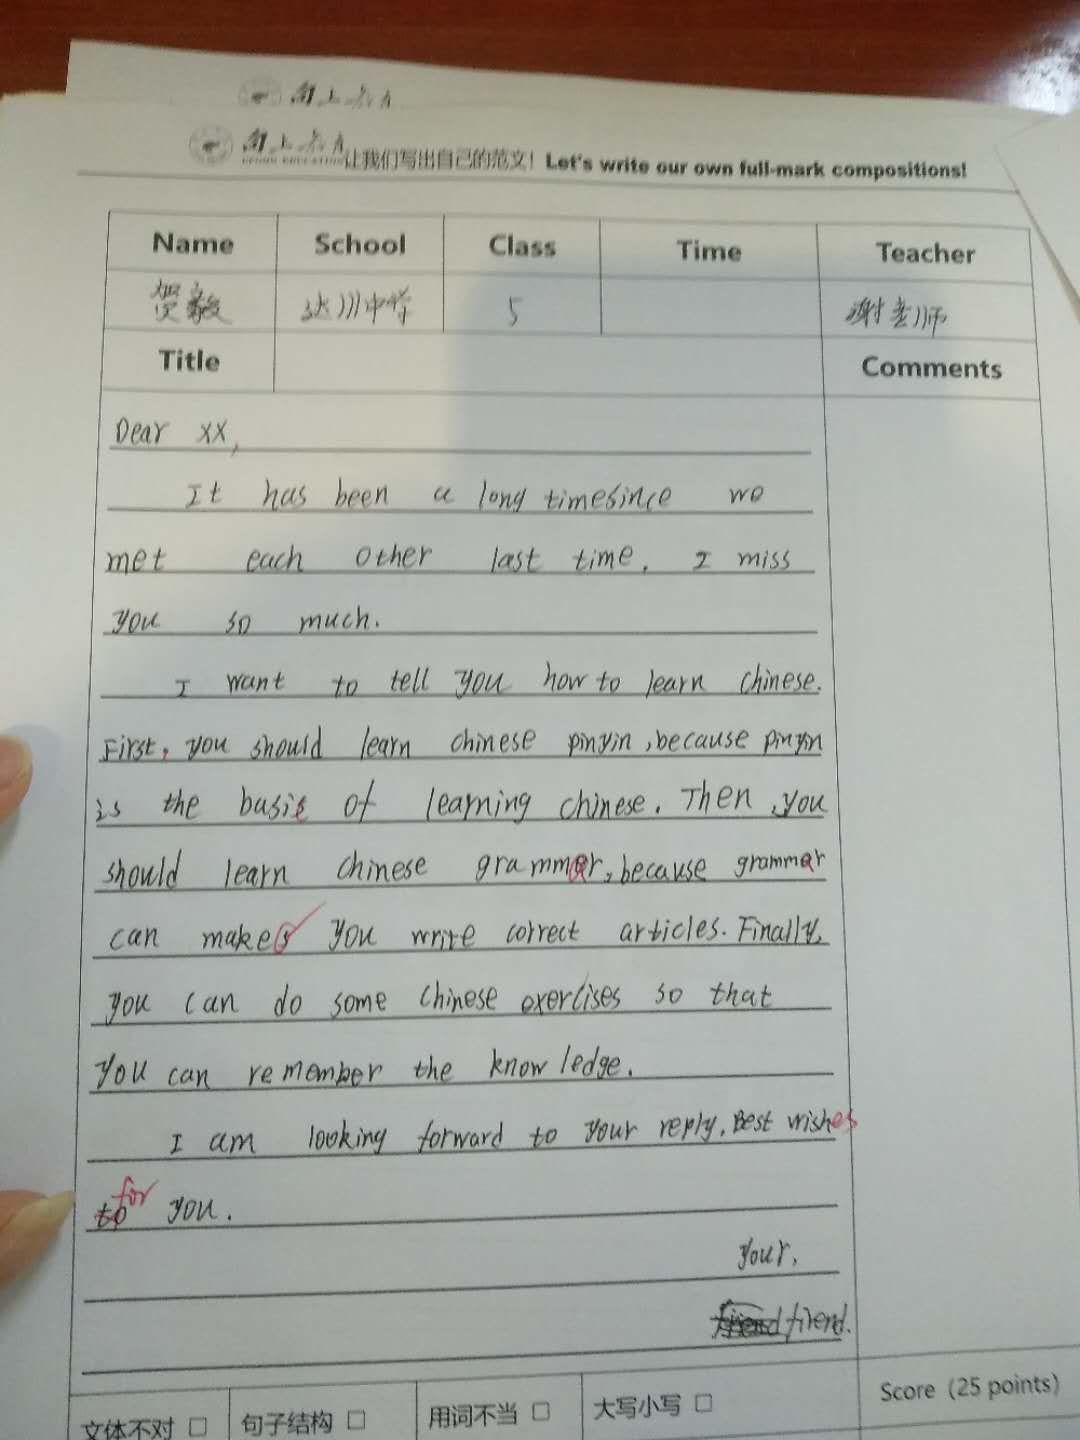 向上教育
向上教育
让我们写出自己的范文! Let's write our own full-mark compositions!
Name School Class Time Teacher
贺毅 达川中学 5 谢老师
Title Comments
Dear XX,
It has been a long timesince we
met each other last time. I miss
you so much.
I want to tell you how to learn chinese.
First, you should learn chinese pinyin, because pinyin
is the basis of learning chinese. Then, you
should learn chinese grammar, because grammar
can makes you write correct articles. Finally,
you can do some chinese exercises so that
you can remember the knowledge.
I am looking forward to your reply. Best wishes
to for you.
Your,
firend.
文体不对 □ 句子结构 □ 用词不当 □ 大写小写 □ Score (25 points)